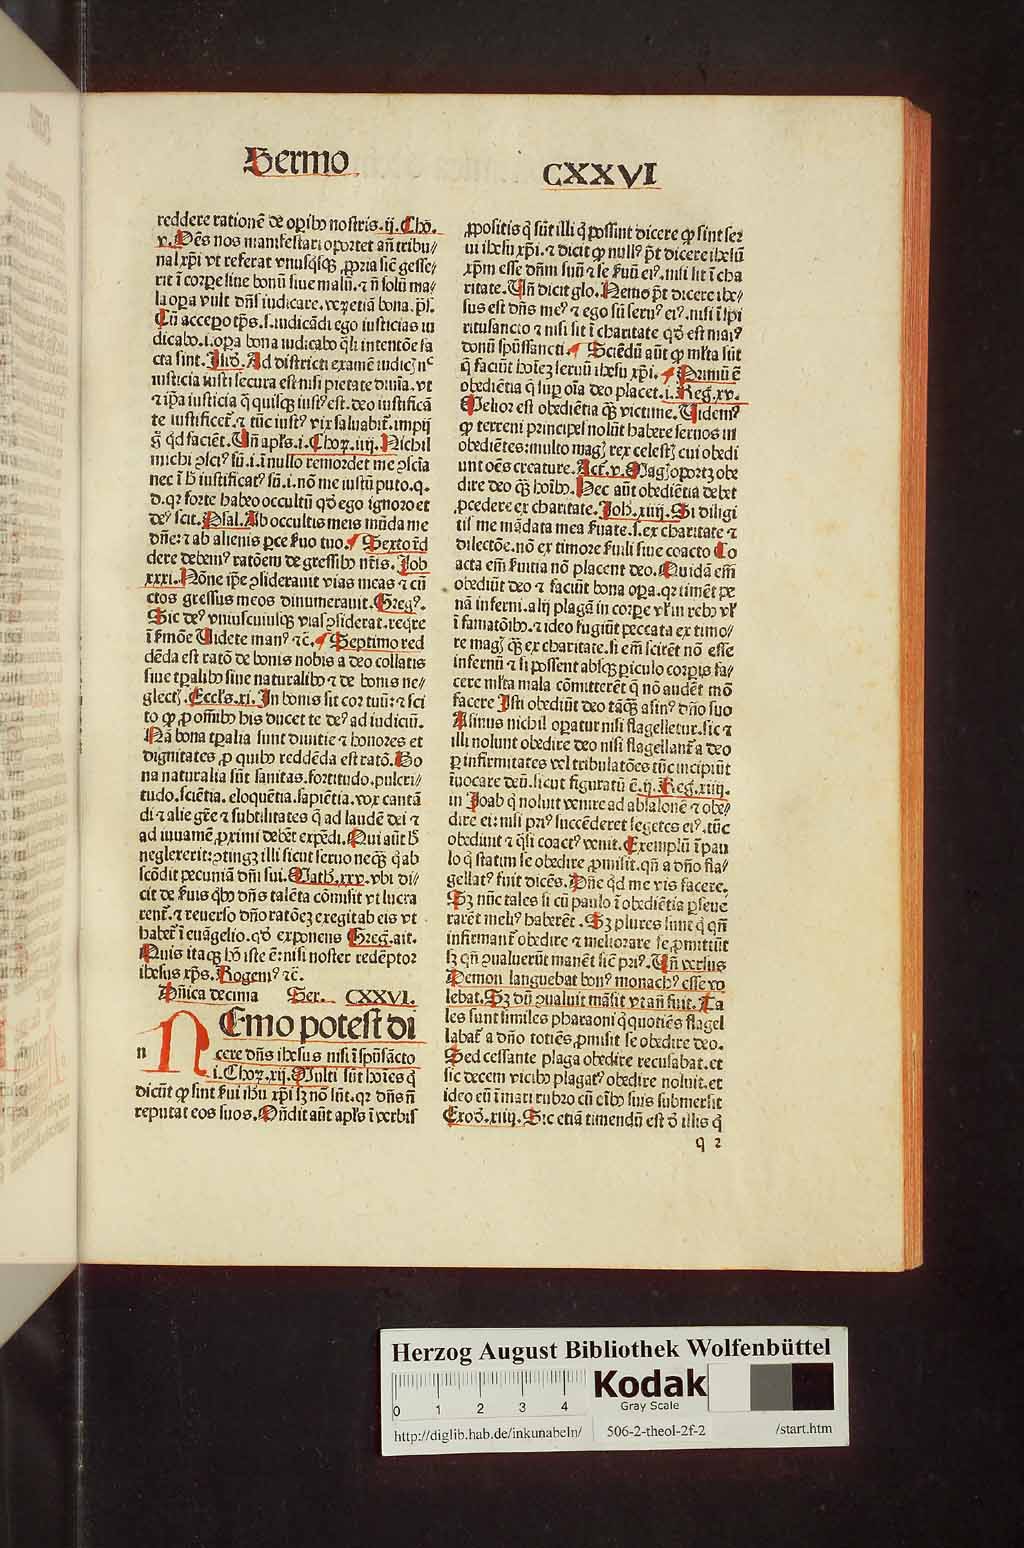 Sermo CXXVI
reddere rationē de oꝑibꝰ nostris. ij. Choꝝ.
v. Oēs nos manifestari oportet añ tribu⸗
nal xp̄i vt referat vnusq̄sqꝫ ꝓpria sic̄ gesse⸗
rit ī corꝑe siue bonū siue malū. ⁊ ñ solū ma⸗
la oꝑa vult dn̄s iudicare. veꝝ etiā bona. p̄s.
Cū accepo tp̄s. s. iudicādi ego iusticias iu
dicabo. i. oꝑa bona iudicabo q̄li intentōe fa
cta sint. Jsid. Ad districti examē iudicꝭ nᶜ
iusticia iusti secura est nisi pietate diuīa. vt
⁊ ip̄a iusticia q̄ quisqꝫ iustꝰ est. deo iustificā
te iustificet̄. ⁊ tūc iustꝰ vix saluabit̄. impij
g̊ qd faciēt. Vñ apl̄s. i. Choꝝ. iiij. Nichil
michi ꝯsciꝰ sū. i. ī nullo remordet me ꝯscīa
nec ī h̄ iustificatꝰ sū. i. nō me iustū puto. q.
d. qꝛ forte habeo occultū qd̄ ego ignoro et
deꝰ scit. Psal. Ab occultis meis mūda me
dn̄e: ⁊ ab alienis ꝑce s̄uo tuo. Sexto r̄d
dere debemꝰ ratōem de gressibꝰ nr̄is. Job
xxxi. Nōne ip̄e ꝯsiderauit vias meas ⁊ cū
ctos gressus meos dinumerauit. Gregꝰ.
Sic deꝰ vniuscuiusqꝫ vias ꝯsiderat. reqr̄e
ī s̄mōe Videte manꝰ ⁊c̄. Septimo red
dēda est ratō de bonis nobis a deo collatis
siue tꝑalibꝰ siue naturalibꝰ ⁊ de bonis ne⸗
glectꝭ. Eccl̄s. xi. In bonis sit cor tuū: ⁊ sci
to ꝙ ꝓ om̄ibꝰ his ducet te deꝰ ad iudiciū.
Nā bona tꝑalia sunt diuitie ⁊ honores et
dignitates ꝓ quibꝰ reddēda est ratō. Bo
na naturalia sūt sanitas. fortitudo. pulcri⸗
tudo. sciētia. eloquētia. sapiētia. vox cantā
di ⁊ alie gr̄e ⁊ subtilitates q̄ ad laudē dei ⁊
ad iuuamē ꝓximi debēt expēdi. Qui aūt h̄
neglexerit: ꝯtingꝫ illi sicut seruo neqꝫ q̄ ab
scōdit pecuniā dn̄i sui. Math̄. xxv. vbi di⸗
cit de s̄uis q̄bꝰ dn̄s talēta cōmisit vt lucra
rent̄. ⁊ reuerso dn̄o ratōeꝫ exegit ab eis vt
habet̄ ī euāgelio. qd̄ exponens Greg̊. ait.
Quis itaqꝫ hō iste ē: nisi noster redēptor
ihesus xp̄s. Rogemꝰ ⁊c̄.
Dn̄ica decima Ser. CXXVI.
n NEmo potest di
cere dn̄s ihesus nisi ī sp̄usācto
i. Choꝝ. xij. Multi sūt hoīes q̄
dicūt ꝙ sint s̄ui ih̄u xp̄i sꝫ nō sūt. qꝛ dn̄s ñ
reputat eos suos. Oñdit aūt apl̄s ī verbis
ꝓpositis q̄ sūt illi q̄ possint dicere ꝙ sint ser
ui ihesu xp̄i. ⁊ dicit ꝙ nullꝰ pt̄ dicere ihesū
xp̄m esse dn̄m suū ⁊ se s̄uū eiꝰ. nisi sit ī cha
ritate. Vñ dicit glo. Nemo pt̄ dicere ihe⸗
sus est dn̄s meꝰ ⁊ ego sū seruꝰ eiꝰ. nisi ī sp̄i
ritusancto ⁊ nisi sit ī charitate qd̄ est maiꝰ
donū sp̄ussancti. Sciēdū aūt ꝙ ml̄ta sūt
q̄ faciūt hoīeꝫ seruū ihesu xp̄i. Primū ē
obediētia q̄ suꝑ oīa deo placet. i. Reg̊. xv.
Melior est obediētia qꝫ victime. Videmꝰ
ꝙ terreni principes nolūt habere seruos in
obediētes: multo magꝭ rex celestꝭ cui obedi
unt oēs creature. Act̄. v. Magꝭ oportꝫ obe
dire deo qꝫ hoībꝰ. Hec aūt obediētia debet
ꝓcedere ex charitate. Joh̄. xiiij. Si diligi
tis me mādata mea s̄uate. s. ex charitate ⁊
dilectōe. nō ex timore s̄uili siue coacto Co
acta em̄ s̄uitia nō placent deo. Quidā em̄
obediūt deo ⁊ faciūt bona oꝑa. qꝛ timēt pe
nā inferni. alij plagā in corꝑe vl̄ in rebꝰ vl̄
ī famatōibꝰ. ⁊ ideo fugiūt peccata ex timo⸗
re magꝭ qꝫ ex charitate. si em̄ scirēt nō esse
infernū ⁊ si possent absqꝫ ꝑiculo corꝑis fa⸗
cere ml̄ta mala cōmitterēt q̄ nō audēt mō
facere Isti obediūt deo tāqꝫ asinꝰ dn̄o suo
Asinus nichil oꝑatur nisi flagelletur. sic ⁊
illi nolunt obedire deo nisi flagellant̄ a deo
ꝑ infirmitates vel tribulatōes tūc incipiūt
īuocare deū. sicut figuratū ē. ij. Reg̊. xiiij.
in Joab q̄ noluit venire ad absalonē ⁊ obe⸗
dire ei: nisi priꝰ succēderet segetes eiꝰ. tūc
obediuit ⁊ q̄si coactꝰ venit. Exemplū ī pau
lo q̄ statim se obedire ꝓmisit. qn̄ a dn̄o fla⸗
gellatꝰ fuit dicēs. Dn̄e qd me vis facere.
Sꝫ nūc tales si cū paulo ī obediētia ꝑseue
rarēt meliꝰ haberēt. Sꝫ plures sunt q̄ qn̄
infirmant̄ obedire ⁊ meliorare se ꝓmittūt
sꝫ qn̄ ꝯualuerūt manēt sic̄ priꝰ. Vñ versus
Demon languebat bonꝰ monachꝰ esse vo
lebat. Sꝫ dū ꝯualuit māsit vt añ fuit. Ta
les sunt similes pharaoni q̄ quotiēs flagel
labat̄ a dn̄o totiēs ꝓmisit se obedire deo.
Sed cessante plaga obedire recusabat. et
sic decem vicibꝰ plagatꝰ obedire noluit. et
ideo cū ī mari rubro cū oībꝰ suis submersit
Exod̄. xiiij. Sic etiā timendū est ꝺ illis q̄
q 2
Herzog August Bibliothek Wolfenbüttel
0 1 2 3 4
Kodak
Gray Scale
http://diglib.hab.de/inkunabeln/ 506-2-theol-2f-2 /start.htm